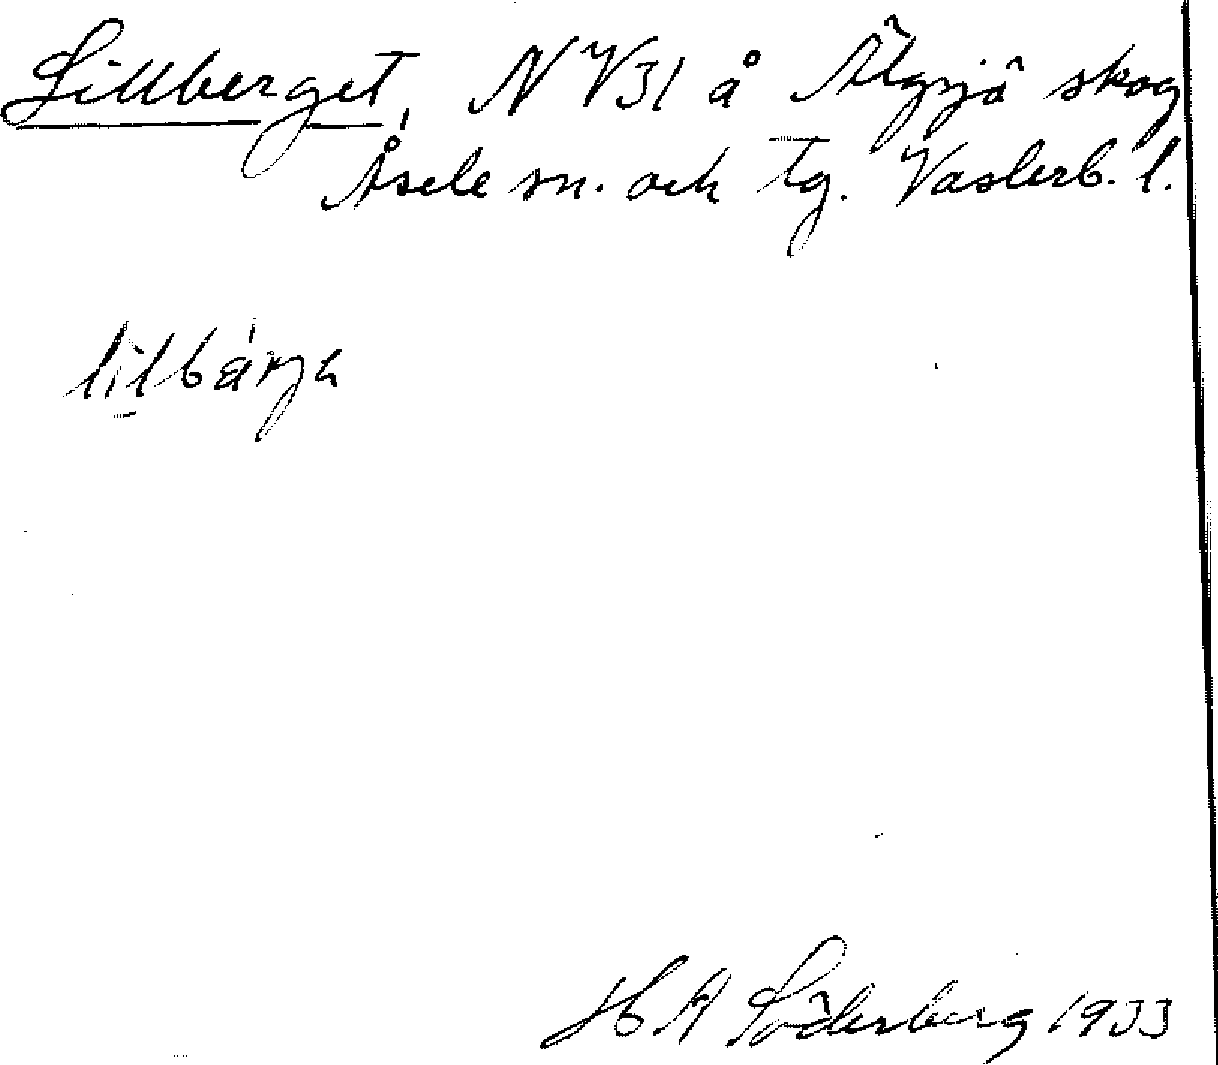 Lillberget, NV31 å Älgsjö skog
Åsele sn. och tg. Västerb. l.
lilbärja
H A Söderberg 1933